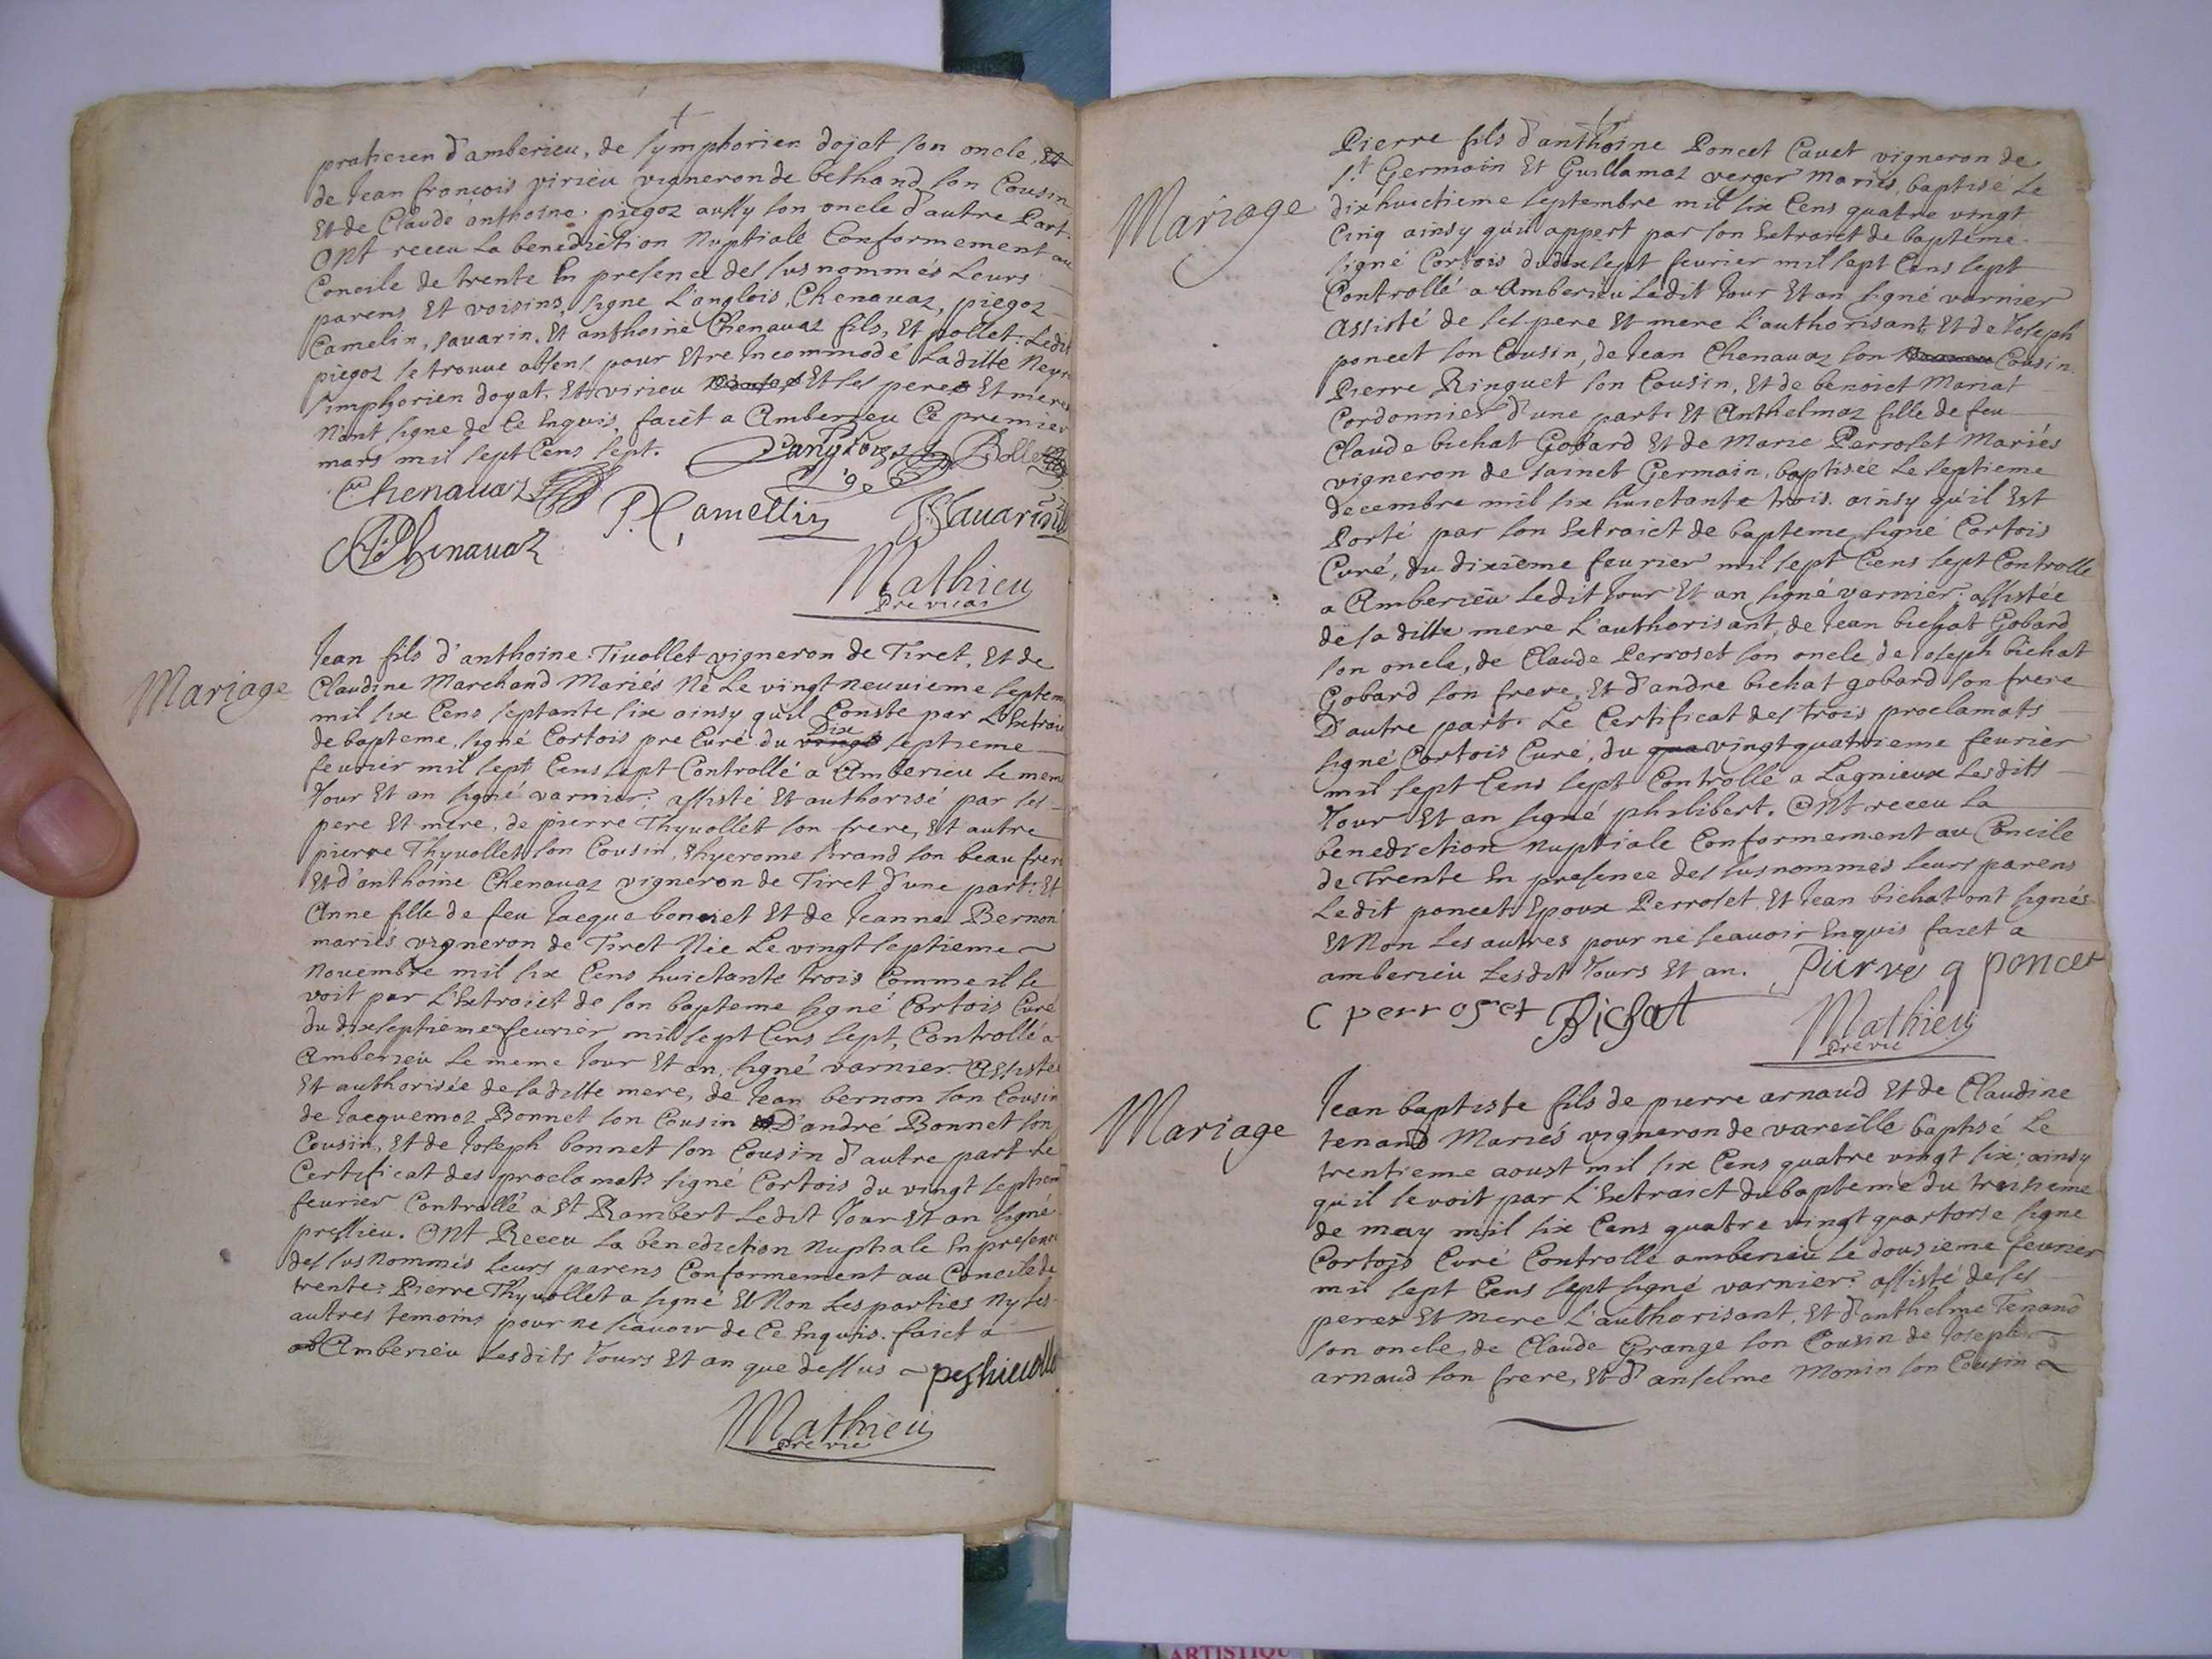 praticien d'amberieu, de symphorien dojat son oncle, Et
de Jean francois virieu vigneron de bethand son Cousin
Et de Claude anthoine piegoz aussy son oncle d'autre Part.
ONt receu La benediction Nuptiale Conformement au
Concile de trente En presence des susnommés Leurs
parens Et voisins, signe L'anglois, Chenavaz, piegoz
Camelin, savarin, Et anthoine Chenavaz fils, Et pollet. Ledit
piegoz se trouve absent pour Etre Incommodé Laditte Neyr
simphorien doyat, Et virieu Et les peres Et meres
N'ont signe de Ce Enquis, faict a Amberieu Ce premier
mars mil sept Cens sept.
Chenavaz
P Camellin
Savarin
A Chenavaz
Mathieu
Pre vicar
Mariage
Jean fils d'anthoine Tivollet vigneron de Tiret, Et de
Claudine Marchand Mariés Né Le vingt neuvieme septem
mil six Cens septante six ainsy qu'il Conste par L'Extrai
de bapteme, signé Cortois pre Curé du Dix septieme
feurier mil sept Cens sept Controllé a Amberieu Le mem
Jour Et an signé varnier. assisté Et authorisé par ses
pere Et mere, de pierre Thyvollet son frere, Et autre
pierre Thyvollet son Cousin, hyerome sirand son beau frere
Et d'anthoine Chenavaz vigneron de Tiret d'une part. Et
Anne fille de feu Jacque bonnet Et de Jeanne Bernon
mariés vigneron de Tiret Née Le vingt septieme
Novembre mil six Cens huictante trois Comme il se
voit par L'Extraict de son bapteme signé Cortois Curé
du dixseptieme feurier mil sept Cens sept, Controllé a
Amberieu Le meme Jour Et an, signé varnier. Assistée
Et authorisée de saditte mere, de Jean bernon son Cousin
de Jacquemoz Bonnet son Cousin D'andré Bonnet son
Cousin, Et de Joseph bonnet son Cousin d'autre part. Le
Certificat des proclamats signé Cortois du vingt septiem
feurier Controllé a St Rambert Ledit Jour Et an signé
pressieu. ONt Receu La benediction Nuptiale En presence
des susNommés Leurs parens Conformement au Concile de
trente: Pierre Thyvollet a signé Et Non Les parties Ny Les
autres temoins pour ne scavoir de Ce Enquis. faict a
Amberieu Lesdits Jours Et an que dessus
Mathieu
Pre vic
Pierre fils d'anthoine Poncet Cavet vigneron de
St Germain Et Guillamaz verger Mariés, baptisé Le
Mariage
dixhuictieme septembre mil six Cens quatre vingt
Cinq ainsy qu'il appert par son Extraict de bapteme
signé Cortois du dixsept feurier mil sept Cens sept
Controllé a Amberieu Ledit Jour Et an signé varnier
Assisté de ses pere Et mere L'authorisant, Et de Joseph
poncet son Cousin, de Jean Chenavaz son Cousin
Pierre Ringuet son Cousin, Et de benoict Mariat
Cordonnier d'une part. Et Anthelmaz fille de feu
Claude bichat Gobard Et de Marie Perroset Mariés
vigneron de sainct Germain, baptisée Le septieme
decembre mil six huictante trois. ainsy qu'il Est
Porté par son Extraict de bapteme, signé Cortois
Curé, du dixieme feurier mil sept Cens sept Controlle
a Amberieu Ledit Jour Et an signé varnier; assistée
de sa ditte mere L'authorisant, de Jean bichat Gobard
son oncle, de Claude Perroset son oncle, de Joseph bichat
Gobard son frere, Et d'andre bichat gobard son frere
D'autre part. Le Certificat des trois proclamats
signé Cortois Curé, du vingt quatrieme feurier
mil sept Cens sept Controlle a Lagnieux Lesdits
Jour Et an signé philibert. ONt receu La
benediction Nuptiale Conformement au Concile
de Trente En presence des susnommés leurs parens
Ledit poncet Epoux Perroset Et Jean bichat ont signés
Et Non Les autres pour ne scavoir Enquis faict a
amberieu Lesdit Jours Et an. Pierre poncet
C perroset Bichat
Mathieu
Pre vic
Mariage
Jean baptiste fils de pierre arnaud Et de Claudine
tenand Mariés vigneron de vareille baptisé Le
trentieme aoust mil six Cens quatre vingt six; ainsy
qu'il se voit par L'Extraict du bapteme du treisieme
de may mil six Cens quatre vingt quartorse signe
Cortois Curé Controllé amberieu Le dousieme feurier
mil sept Cens sept signé varnier: assisté de ses
peres Et mere L'authorisant, Et d'anthelme Tenand
son oncle, de Claude Grange son Cousin de Joseph
arnaud son frere, Et d'anselme Monin son Cousin
ARTISTIQU